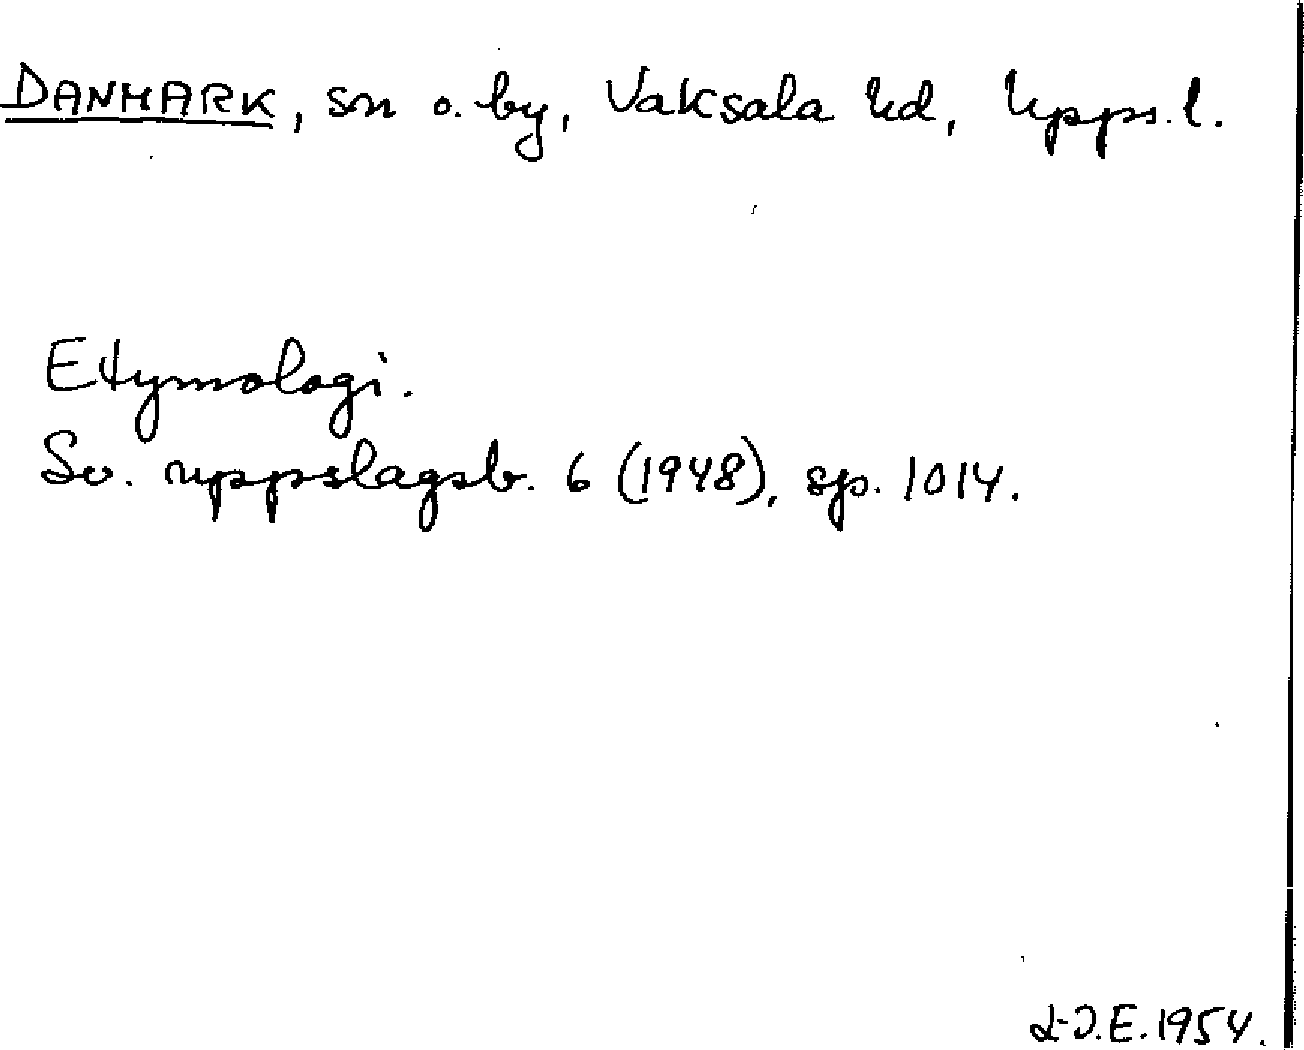 DANMARK, sn o. by, Vaksala hd, Upps. l.
Etymologi.
Sv. uppslagsb. 6 (1948), sp. 1014.
L-O.E. 1954.